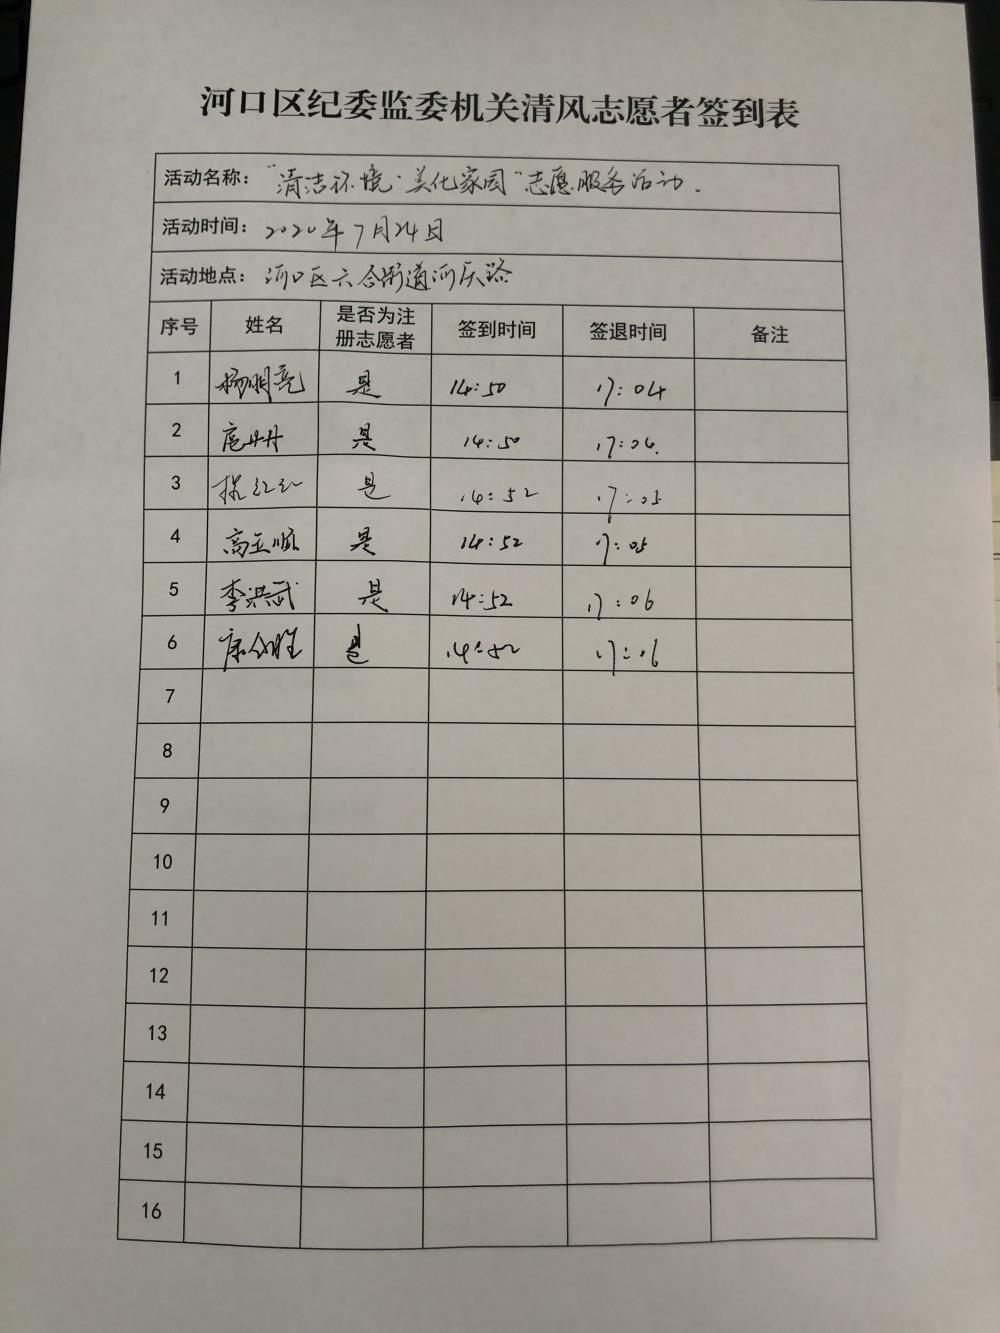 河口区纪委监委机关清风志愿者签到表
活动名称：“清洁环境·美化家园”志愿服务活动.
活动时间：2020年7月24日
活动地点：河口区六合街道河庆路
序号 姓名 是否为注册志愿者 签到时间 签退时间 备注
1 杨明亮 是 14:50 17:04
2 扈丹丹 是 14:50 17:04.
3 红红 是 14:52 17:05
4 高玉顺 是 14:52 17:05
5 李洪武 是 14:52 17:06
6 康 胜 是 14:52 17:06
7
8
9
10
11
12
13
14
15
16